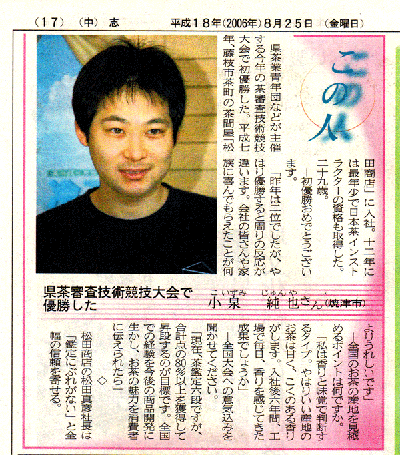 (17) (中) 志 平成18年(2006年)8月25日 (金曜日)
この人
県茶業青年団などが主催
する今年の茶審査技術競技
大会で初優勝した。平成七
年、藤枝市茶町の茶問屋「松
田商店」に入社。十二年に
は最年少で日本茶インスト
ラクターの資格も取得した。
二十九歳。
―初優勝おめでとうござい
ます。
「昨年は二位でしたが、や
はり優勝すると周りの反応が
違います。会社の皆さんや家
族に喜んでもらえたことが何
よりうれしいです」
―全国のお茶の産地を見極
めるポイントは何ですか。
「私は香りと味覚で判断す
るタイプ。やはりいい産地の
お茶は甘く、こくのある香り
がします。入社後六年間、工
場で毎日、香りを感じてきた
成果でしょうか」
―全国大会への意気込みを
聞かせてください。
「現在、茶鑑定六段ですが、
合計点の80%以上を獲得して
昇段するのが目標です。全国
での経験を今後の商品開発に
生かし、お茶の魅力を消費者
に伝えられたら」
◇
松田商店の松田真彦社長は
「鑑定にぶれがない」と全
幅の信頼を寄せる。
県茶審査技術競技大会で
優勝した
小泉 純也さん(焼津市)
こいずみ じゅんや